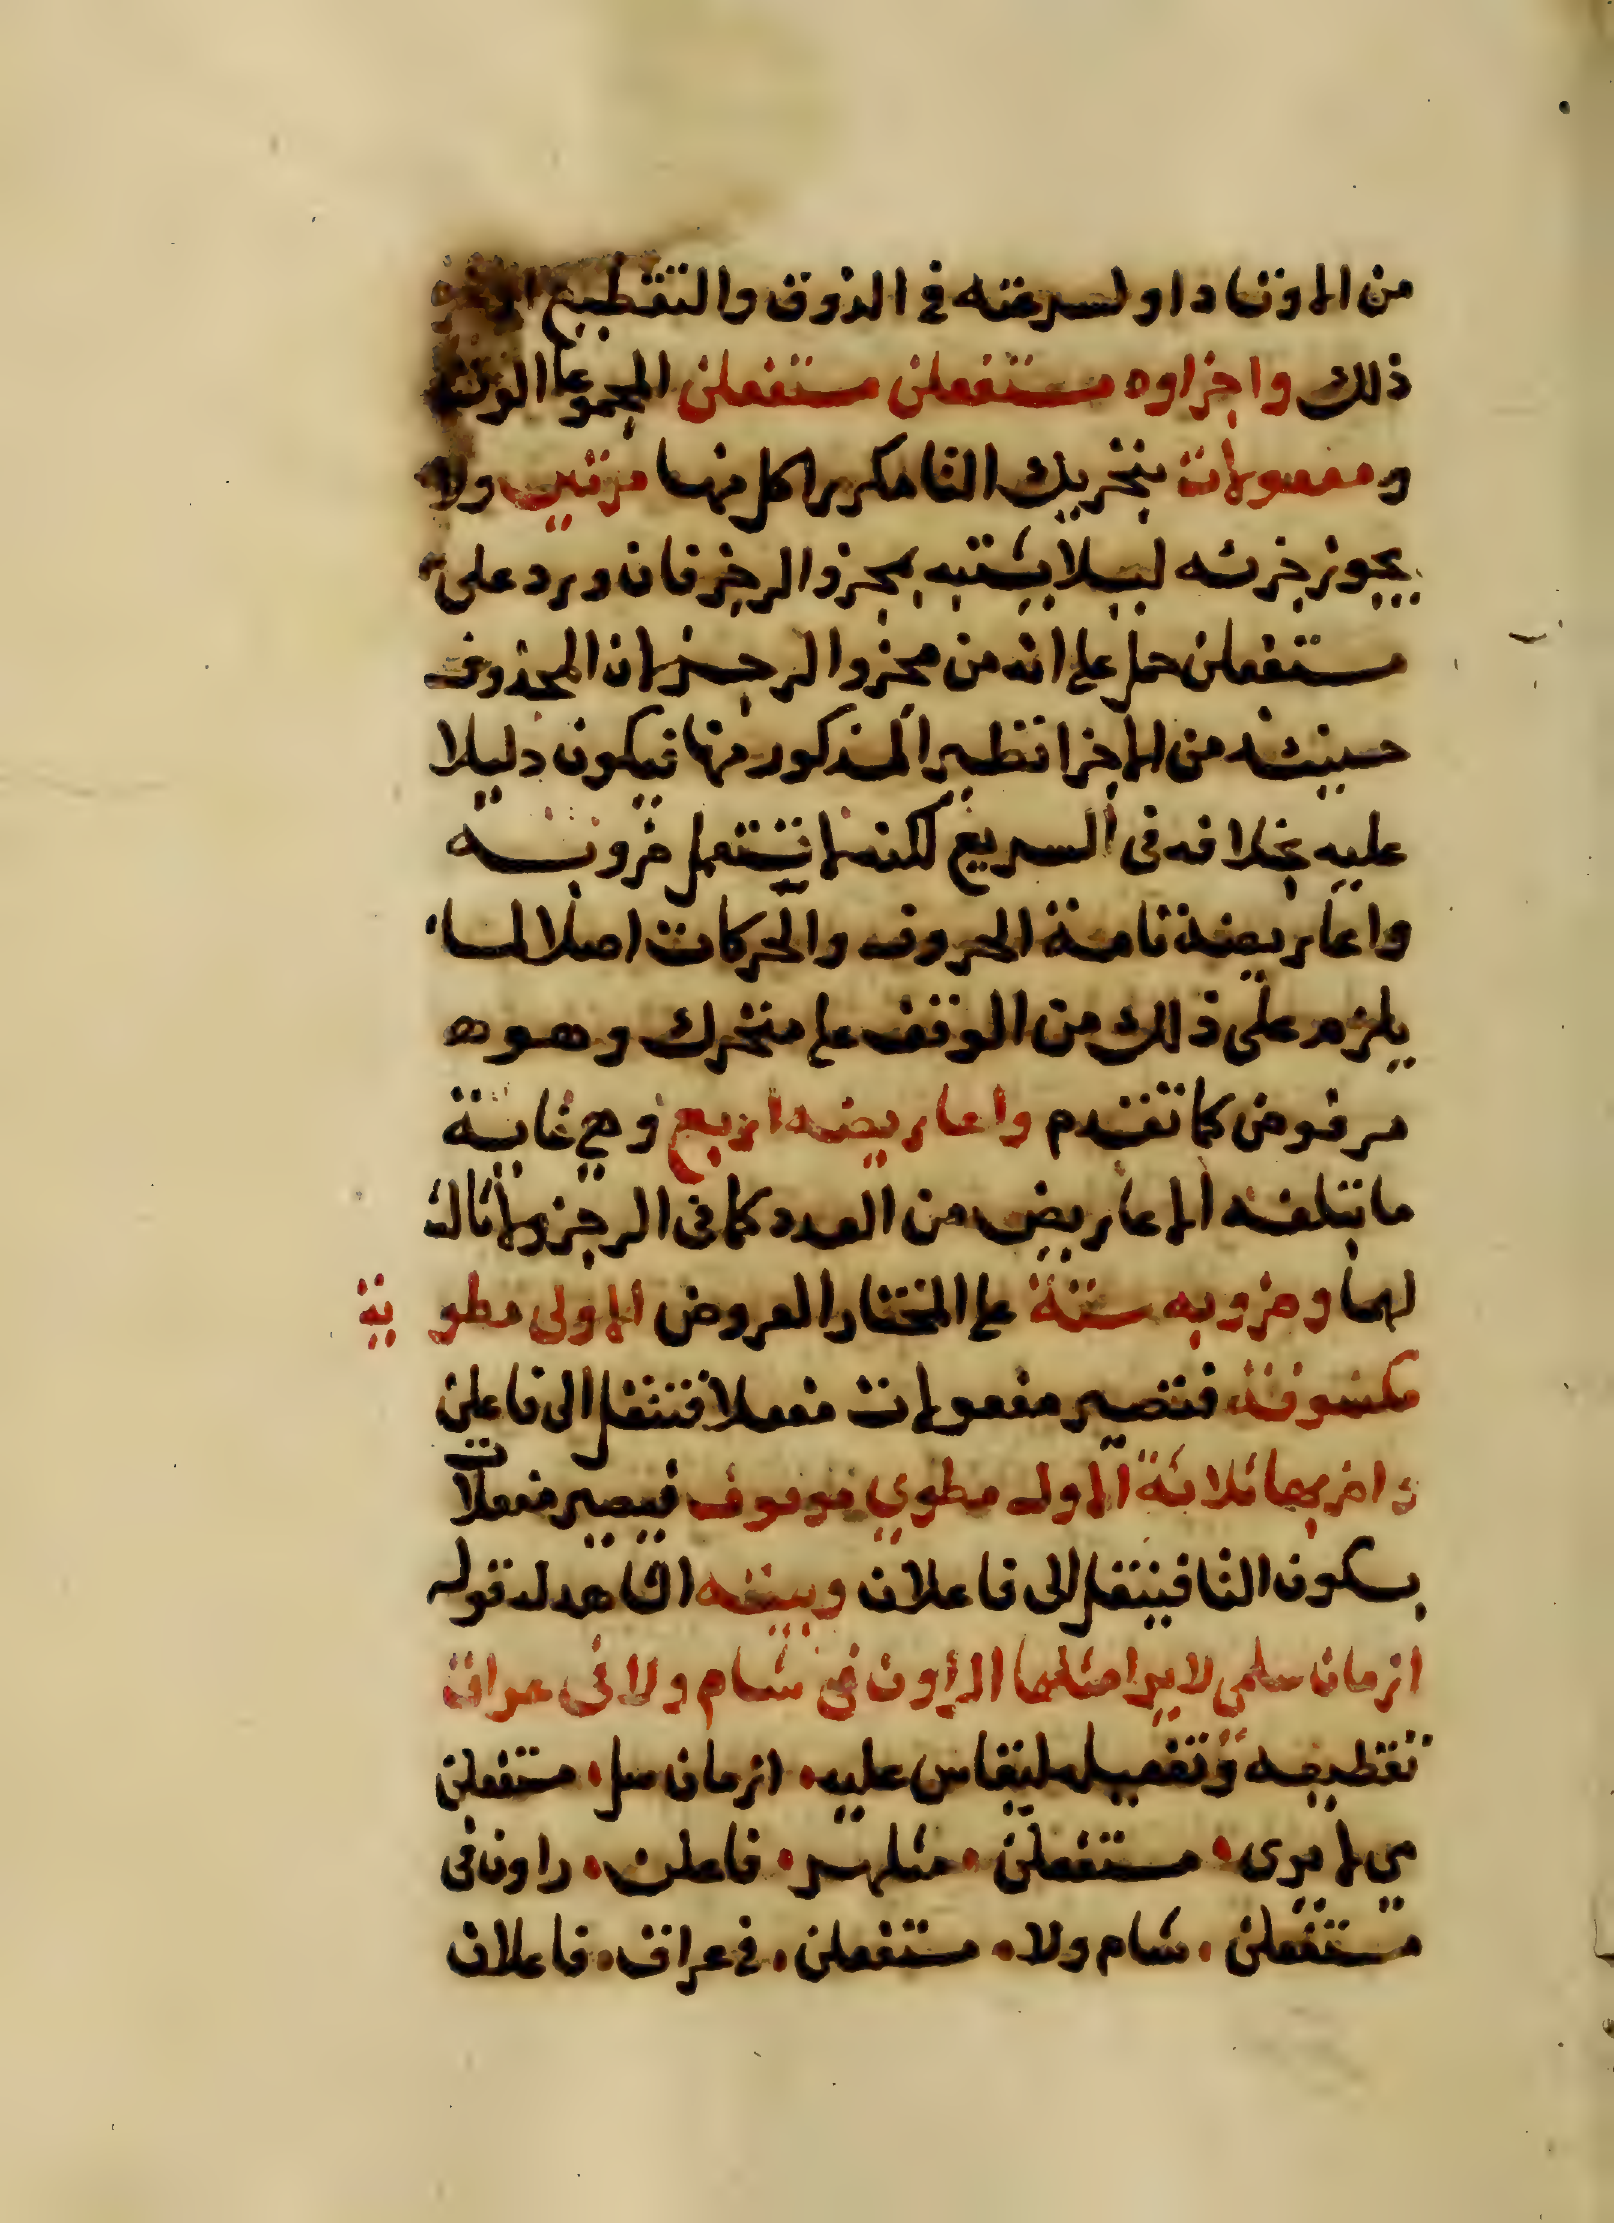 من الاوتاد او لسرعته في الذوق والتقطيع او نحو
ذلك واجزاوه مستفعلن مستفعلن المجموعا الوتد
و مفعولات بتحريك التا مكررا كل منها مرتين ولا
يجوز جزئه ليلا يشتبه بمجزوا الرجز فان ورد على
مستفعلن حمل على انه من مجزوا الرجز لان المحذوف
حينئذ من الاجزا نظير المذكور منها فيكون دليلا
عليه بخلافه في السريع لكنه لا تستعمل ضروبه
واعاريضه تامة الحروف والحركات اصلا لما
يلزم على ذلك من الوقف على متحرك وهو
مرفوض كما تقدم واعاريضه اربع وهي غاية
ما تبلغه الاعاريض من العدد كما في الرجز ولا ثالث
لهما وضروبه ستة على المختار العروض الاولى مطوية
مكسوفة فتصير مفعولات مفعلا فتنقل الى فاعلن
و اضربها ثلاثة الاول مطوي موقوف فيصير مفعلات
بسكون التا فينقل الى فاعلان وبيته الشاهد له قوله
ازمان سلمى لا يرا مثلها الراون في شام ولا في عراق
تقطيعه وتفعيله ليقاس عليه . ازمان سل . مستفعلن
مى لا يرى . مستفعلن . مثلهر . فاعلن . راون في
مستفعلن . شام ولا . مستفعلن . في عراق . فاعلان